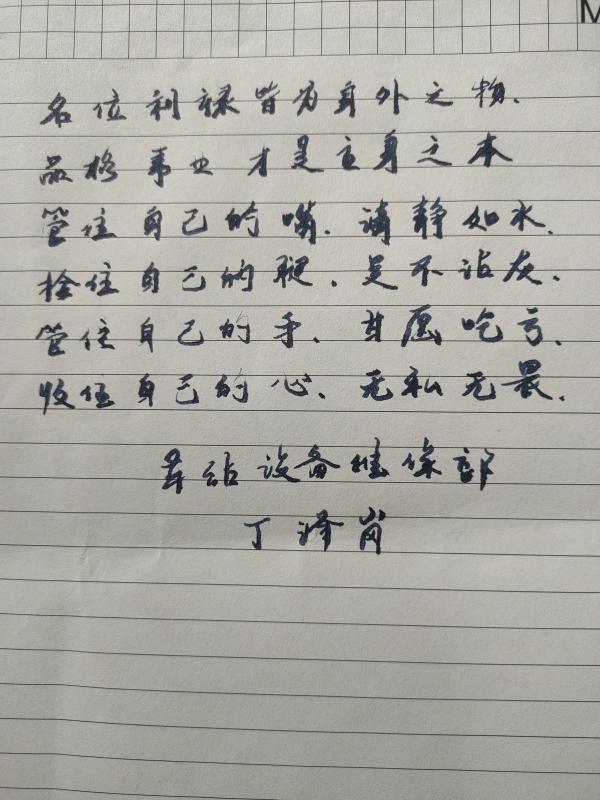 名位利禄皆为身外之物.
品格事业才是立身之本
管住自己的嘴.清静如水.
拴住自己的腿.足不沾灰.
管住自己的手.甘愿吃亏.
收住自己的心.无私无畏.
车站设备维保部
丁泽岗
M